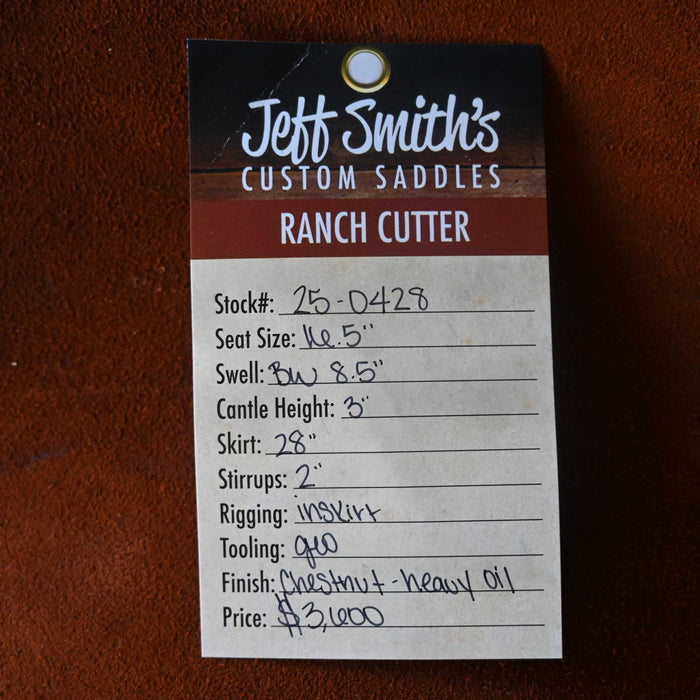 Jeff Smith's
CUSTOM SADDLES
RANCH CUTTER
Stock#: 25-0428
Seat Size: 16.5"
Swell: BW 8.5"
Cantle Height: 3"
Skirt: 28"
Stirrups: 2"
Rigging: inskirt
Tooling: geo
Finish: Chestnut - heavy oil
Price: $3,600